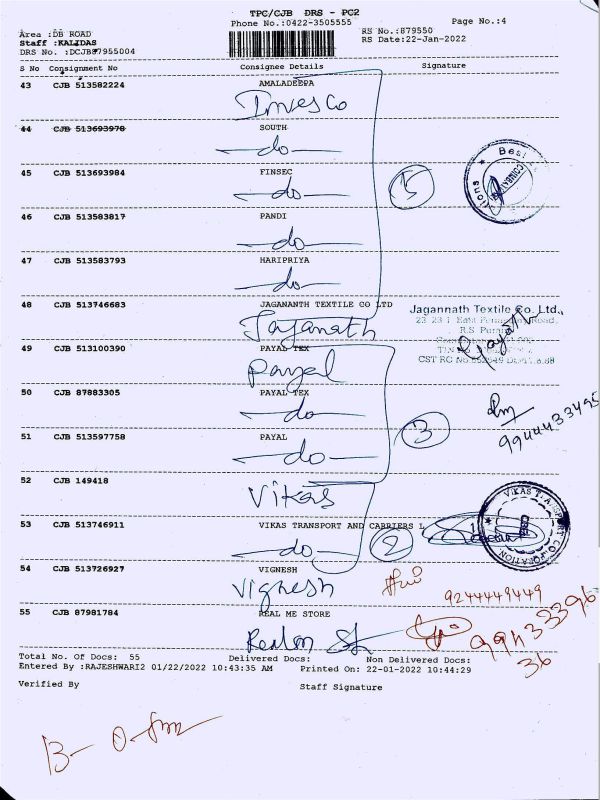 TPC/CJB DRS - PC2
Phone No.:0422-3505555
Page No.:4
Area :DB ROAD
Staff :KALIDAS
DRS No. :DCJB87955004
RS No.:879550
RS Date:22-Jan-2022
S No Consignment No Consignee Details Signature
43 CJB 513582224 AMALADEEPA
Invesco
44 CJB 513693978 SOUTH
-do-
45 CJB 513693984 FINSEC
-do-
46 CJB 513583817 PANDI
-do-
47 CJB 513583793 HARIPRIYA
-do-
5
48 CJB 513746683 JAGANANTH TEXTILE CO LTD
Jaganath
Jagannath Textile Co. Ltd.,
49 CJB 513100390 PAYAL TEX
Payal
50 CJB 87883305 PAYAL TEX
-do-
51 CJB 513597758 PAYAL
-do-
3
9944433495
52 CJB 149418
Vikas
53 CJB 513746911 VIKAS TRANSPORT AND CARRIERS L
-do-
2
54 CJB 513726927 VIGNESH
Vignesh
9244449449
55 CJB 87981784 REAL ME STORE
Total No. Of Docs: 55 Delivered Docs: Non Delivered Docs:
Entered By :RAJESHWARI2 01/22/2022 10:43:35 AM Printed On: 22-01-2022 10:44:29
36
Verified By Staff Signature